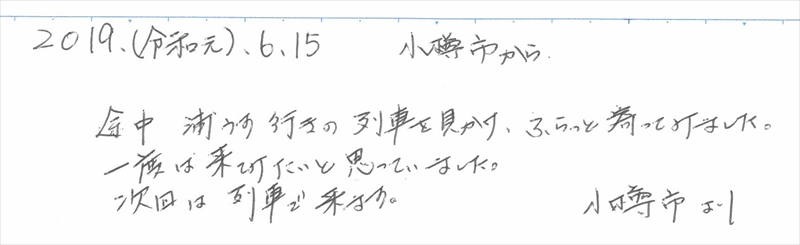 2019.(令和元).6.15 小樽市から
途中 浦うす行きの列車を見かけ、ふらっと寄ってみました。
一度は来てみたいと思っていました。
次回は列車で来ます。 小樽市より